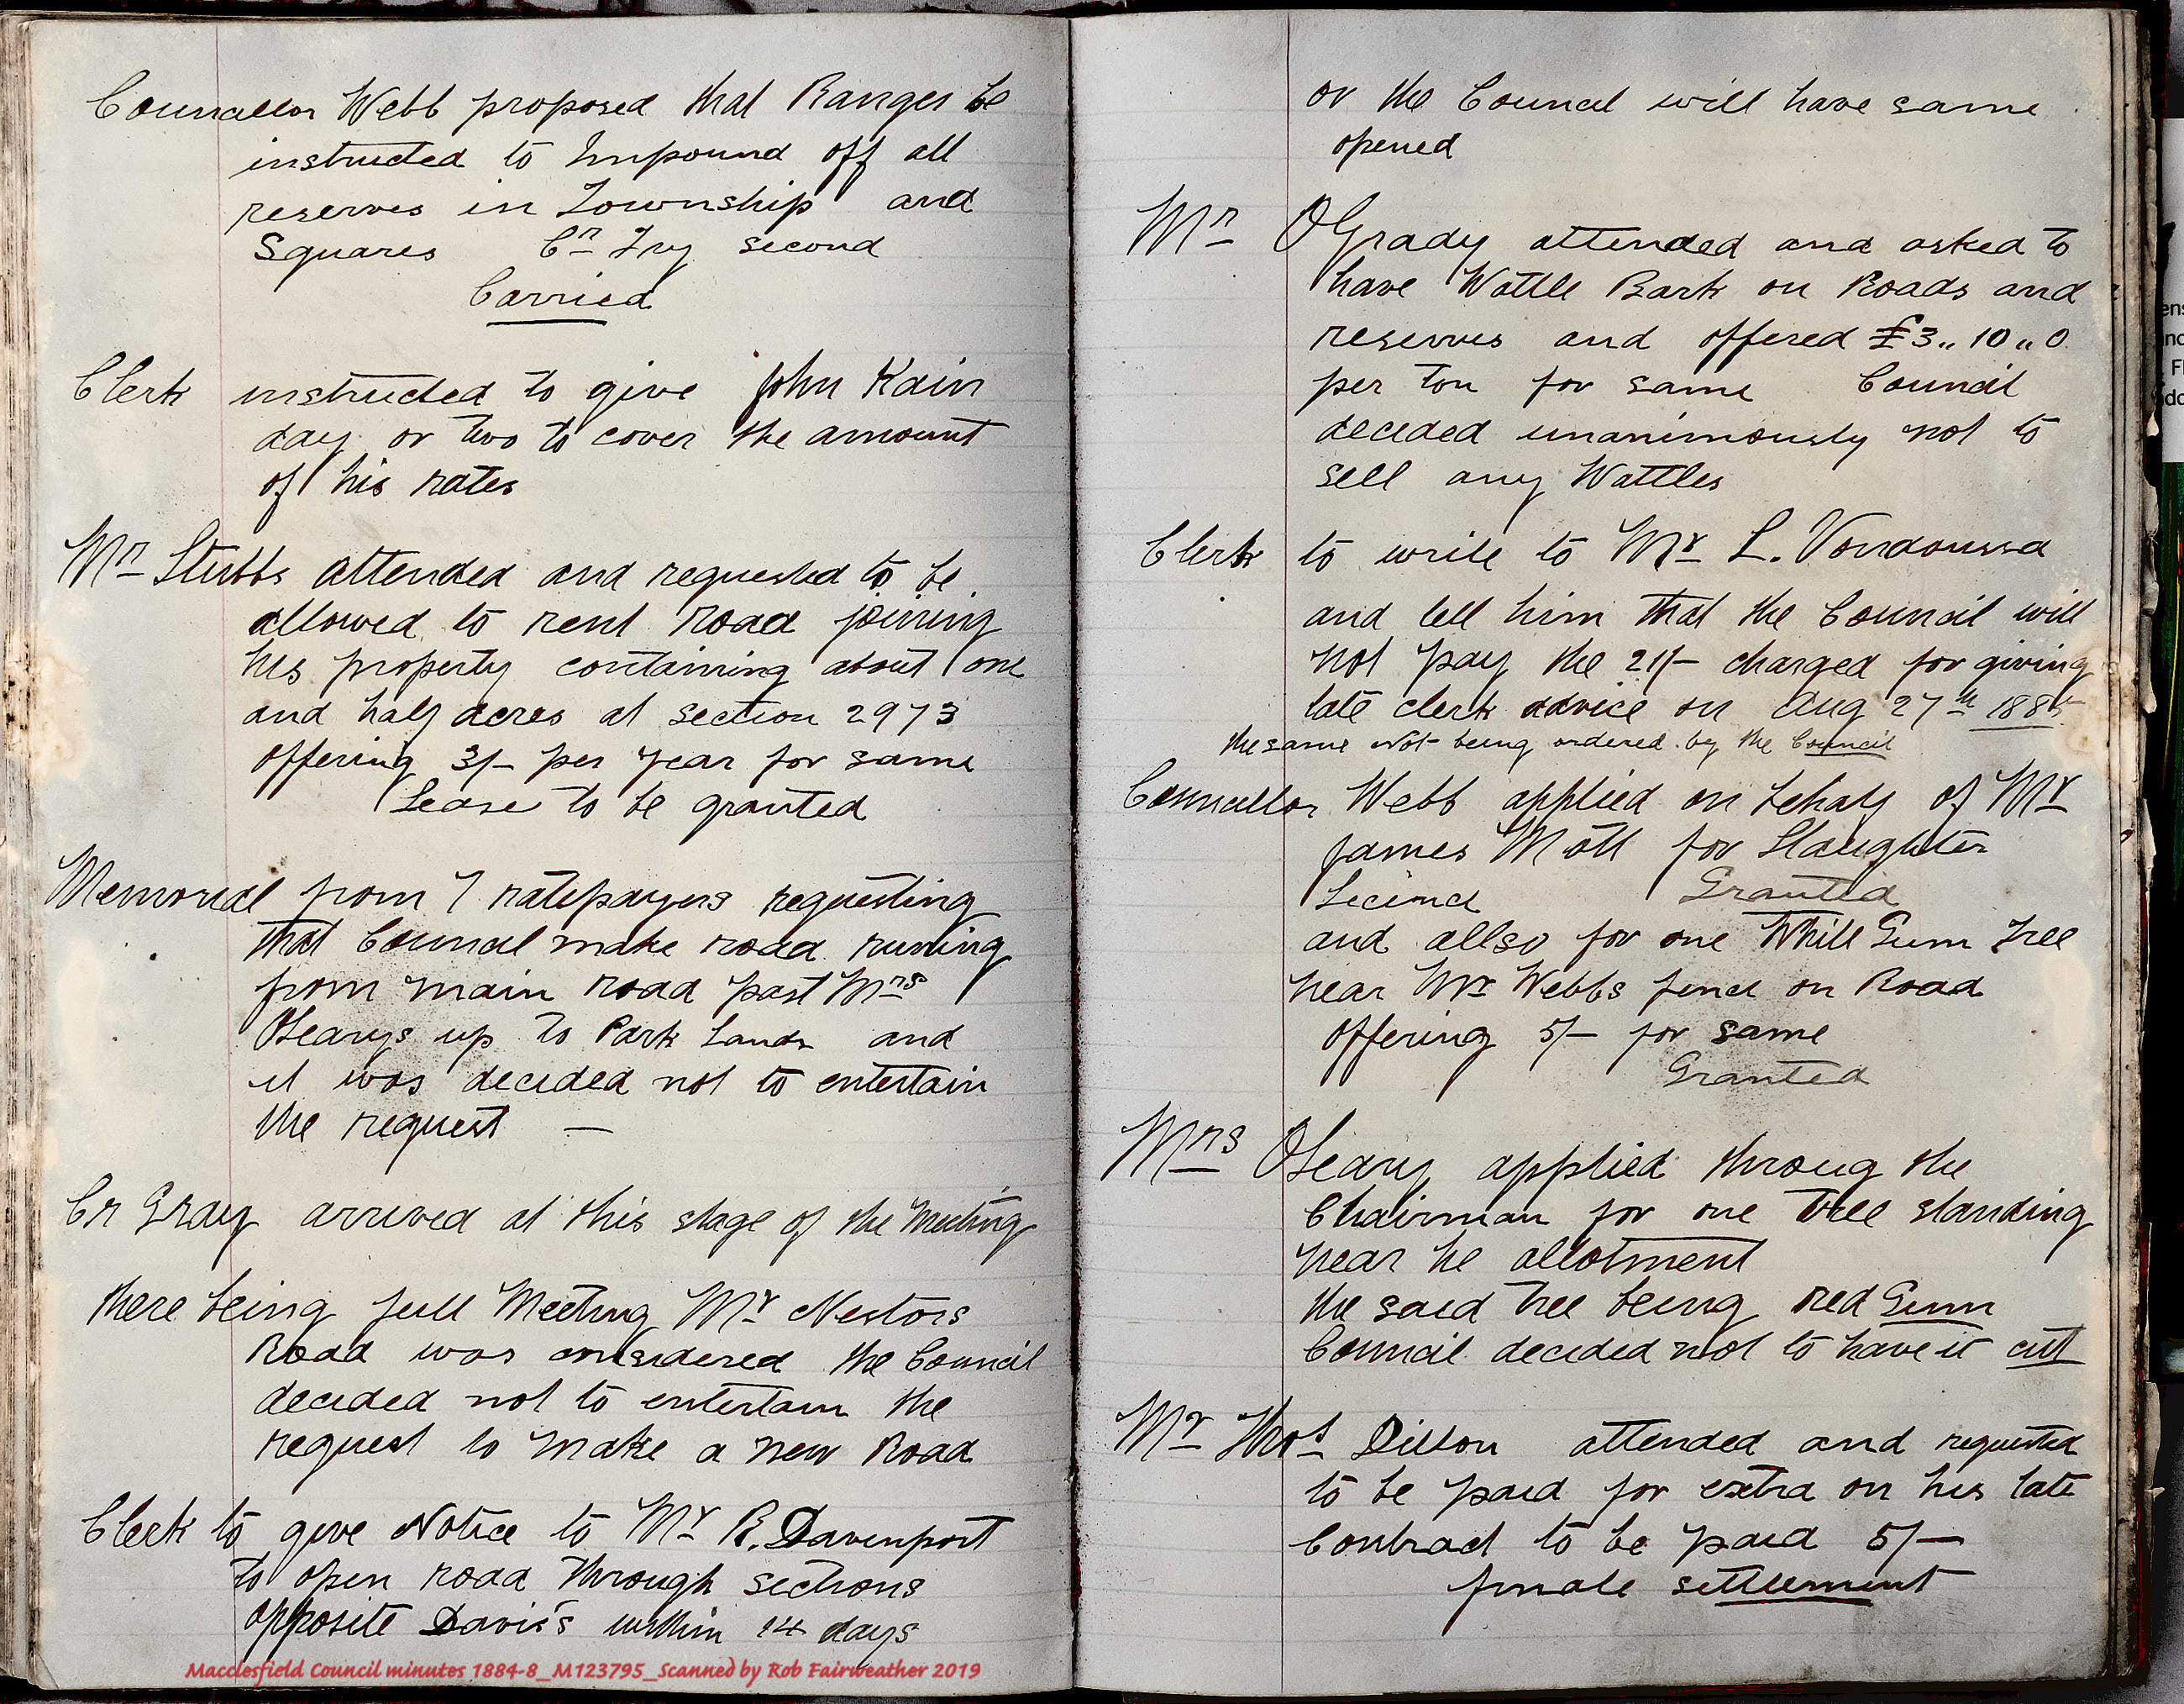 Councellor Webb proposed that Ranger be
instructed to Impound off all
reserves in Township and
Squares Cr Fry second
Carried
Clerk instructed to give John Kain
day or two to cover the amount
of his rates
Mr Stubbs attended and requested to be
allowed to rent Road joining
his property containing about one
and half acres at section 2973
offering 3/- per year for same
Lease to be granted
Memorial from 7 ratepayers requesting
that Council make road running
from main road past Mrs
OLearys up to Park Lands and
it was decided not to entertain
the request —
Cr Gray arrived at this stage of the Meeting
there being full Meeting Mr Nestors
Road was considered the Council
decided not to entertain the
request to make a new Road
Clerk to give Notice to Mr R. Davenport
to open road through sections
opposite Davis's within 14 days
Macclesfield Council minutes 1884-8_M123795_Scanned by Rob Fairweather 2019
or the Council will have same
opened
Mr OGrady attended and asked to
have Wattle Bark on Roads and
reserves and offered £3,, 10,, 0
per ton for same Council
decided unanimously not to
sell any Wattles
Clerk to write to Mr L. Vondoussa
and tell him that the Council will
not pay the 21/- charged for giving
late clerk advice on Aug 27th 1885
the same Not being ordered by the Council
Councellor Webb applied on behalf of Mr
James Mott for Slaughter
Licence Granted
and allso for one White Gum Tree
near Mr Webbs fence on Road
offering 5/- for same
Granted
Mrs OLeary applied throug the
Chairman for one tree standing
near he allotment
the said tree being red Gum
Council decided not to have it cut
Mr Thos Dillon attended and requested
to be paid for extra on his late
Contract to be paid 5/-
finale settlement